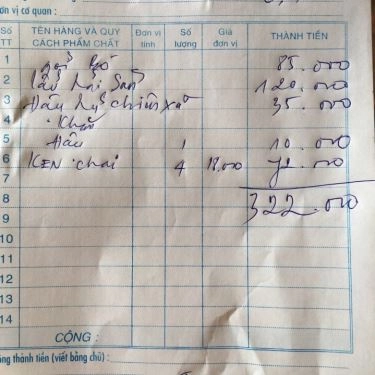 ơn vị cơ quan :
Số TT TÊN HÀNG VÀ QUY CÁCH PHẨM CHẤT Đơn vị tính Số lượng Giá đơn vị THÀNH TIỀN
1 bò 85.000
2 Lẩu hải sản 120.000
3 Đậu hũ chiên xù 35.000
4 Khăn
5 Đậu 1 10.000
6 KEN chai 4 18.000 72.000
7
8 322.000
9
10
11
12
13
14
CỘNG :
ng thành tiền (viết bằng chữ) :